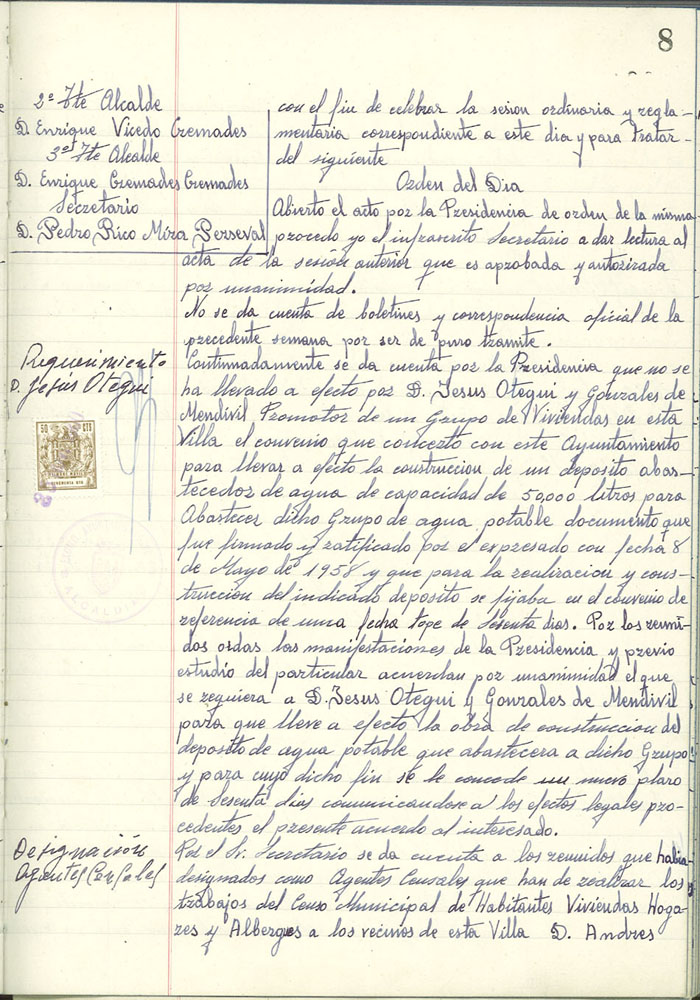 8
2º Tte Alcalde
D. Enrique Vicedo Cremades
3er Tte Alcalde
D. Enrique Cremades Cremades
Secretario
D. Pedro Rico Mira Perseval
con el fin de celebrar la sesion ordinaria y regla-
mentaria correspondiente a este dia y para tratar
del siguiente
Orden del Dia
Abierto el acto por la Presidencia de orden de la misma
procedo yo el infrascrito Secretario a dar lectura al
acta de la sesión anterior que es aprobada y autorizada
por unanimidad.
No se da cuenta de boletines y correspondencia oficial de la
precedente semana por ser de puro tramite.
Requerimiento
D. Jesus Otegui
Continuadamente se da cuenta por la Presidencia que no se
ha llevado a efecto por D. Jesus Otegui y Gonzales de
Mendivil Promotor de un Grupo de Viviendas en esta
Villa el convenio que concerto con este Ayuntamiento
para llevar a efecto la construccion de un deposito abas-
tecedor de agua de capacidad de 50,000 litros para
Abastecer dicho Grupo de agua potable documento que
fue firmado y ratificado por el expresado con fecha 8
de Mayo de 1958 y que para la realizacion y cons-
truccion del indicado deposito se fijaba en el convenio de
referencia de una fecha tope de Sesenta dias. Por los reuni-
dos oidas las manifestaciones de la Presidencia y previo
estudio del particular acuerdan por unanimidad el que
se requiera a D. Jesus Otegui y Gonzales de Mendivil
para que lleve a efecto la obra de construccion del
deposito de agua potable que abastecera a dicho Grupo
y para cuyo dicho fin se le concede un nuevo plazo
de Sesenta dias comunicandose a los efectos legales pro-
cedentes el presente acuerdo al interesado.
50 CTS
ALCALDIA
Designación
Agentes Censales
Por el Sr. Secretario se da cuenta a los reunidos que habia
designados como Agentes Censales que han de realizar los
trabajos del Censo Municipal de Habitantes Viviendas Hoga-
res y Albergues a los vecinos de esta Villa D. Andres